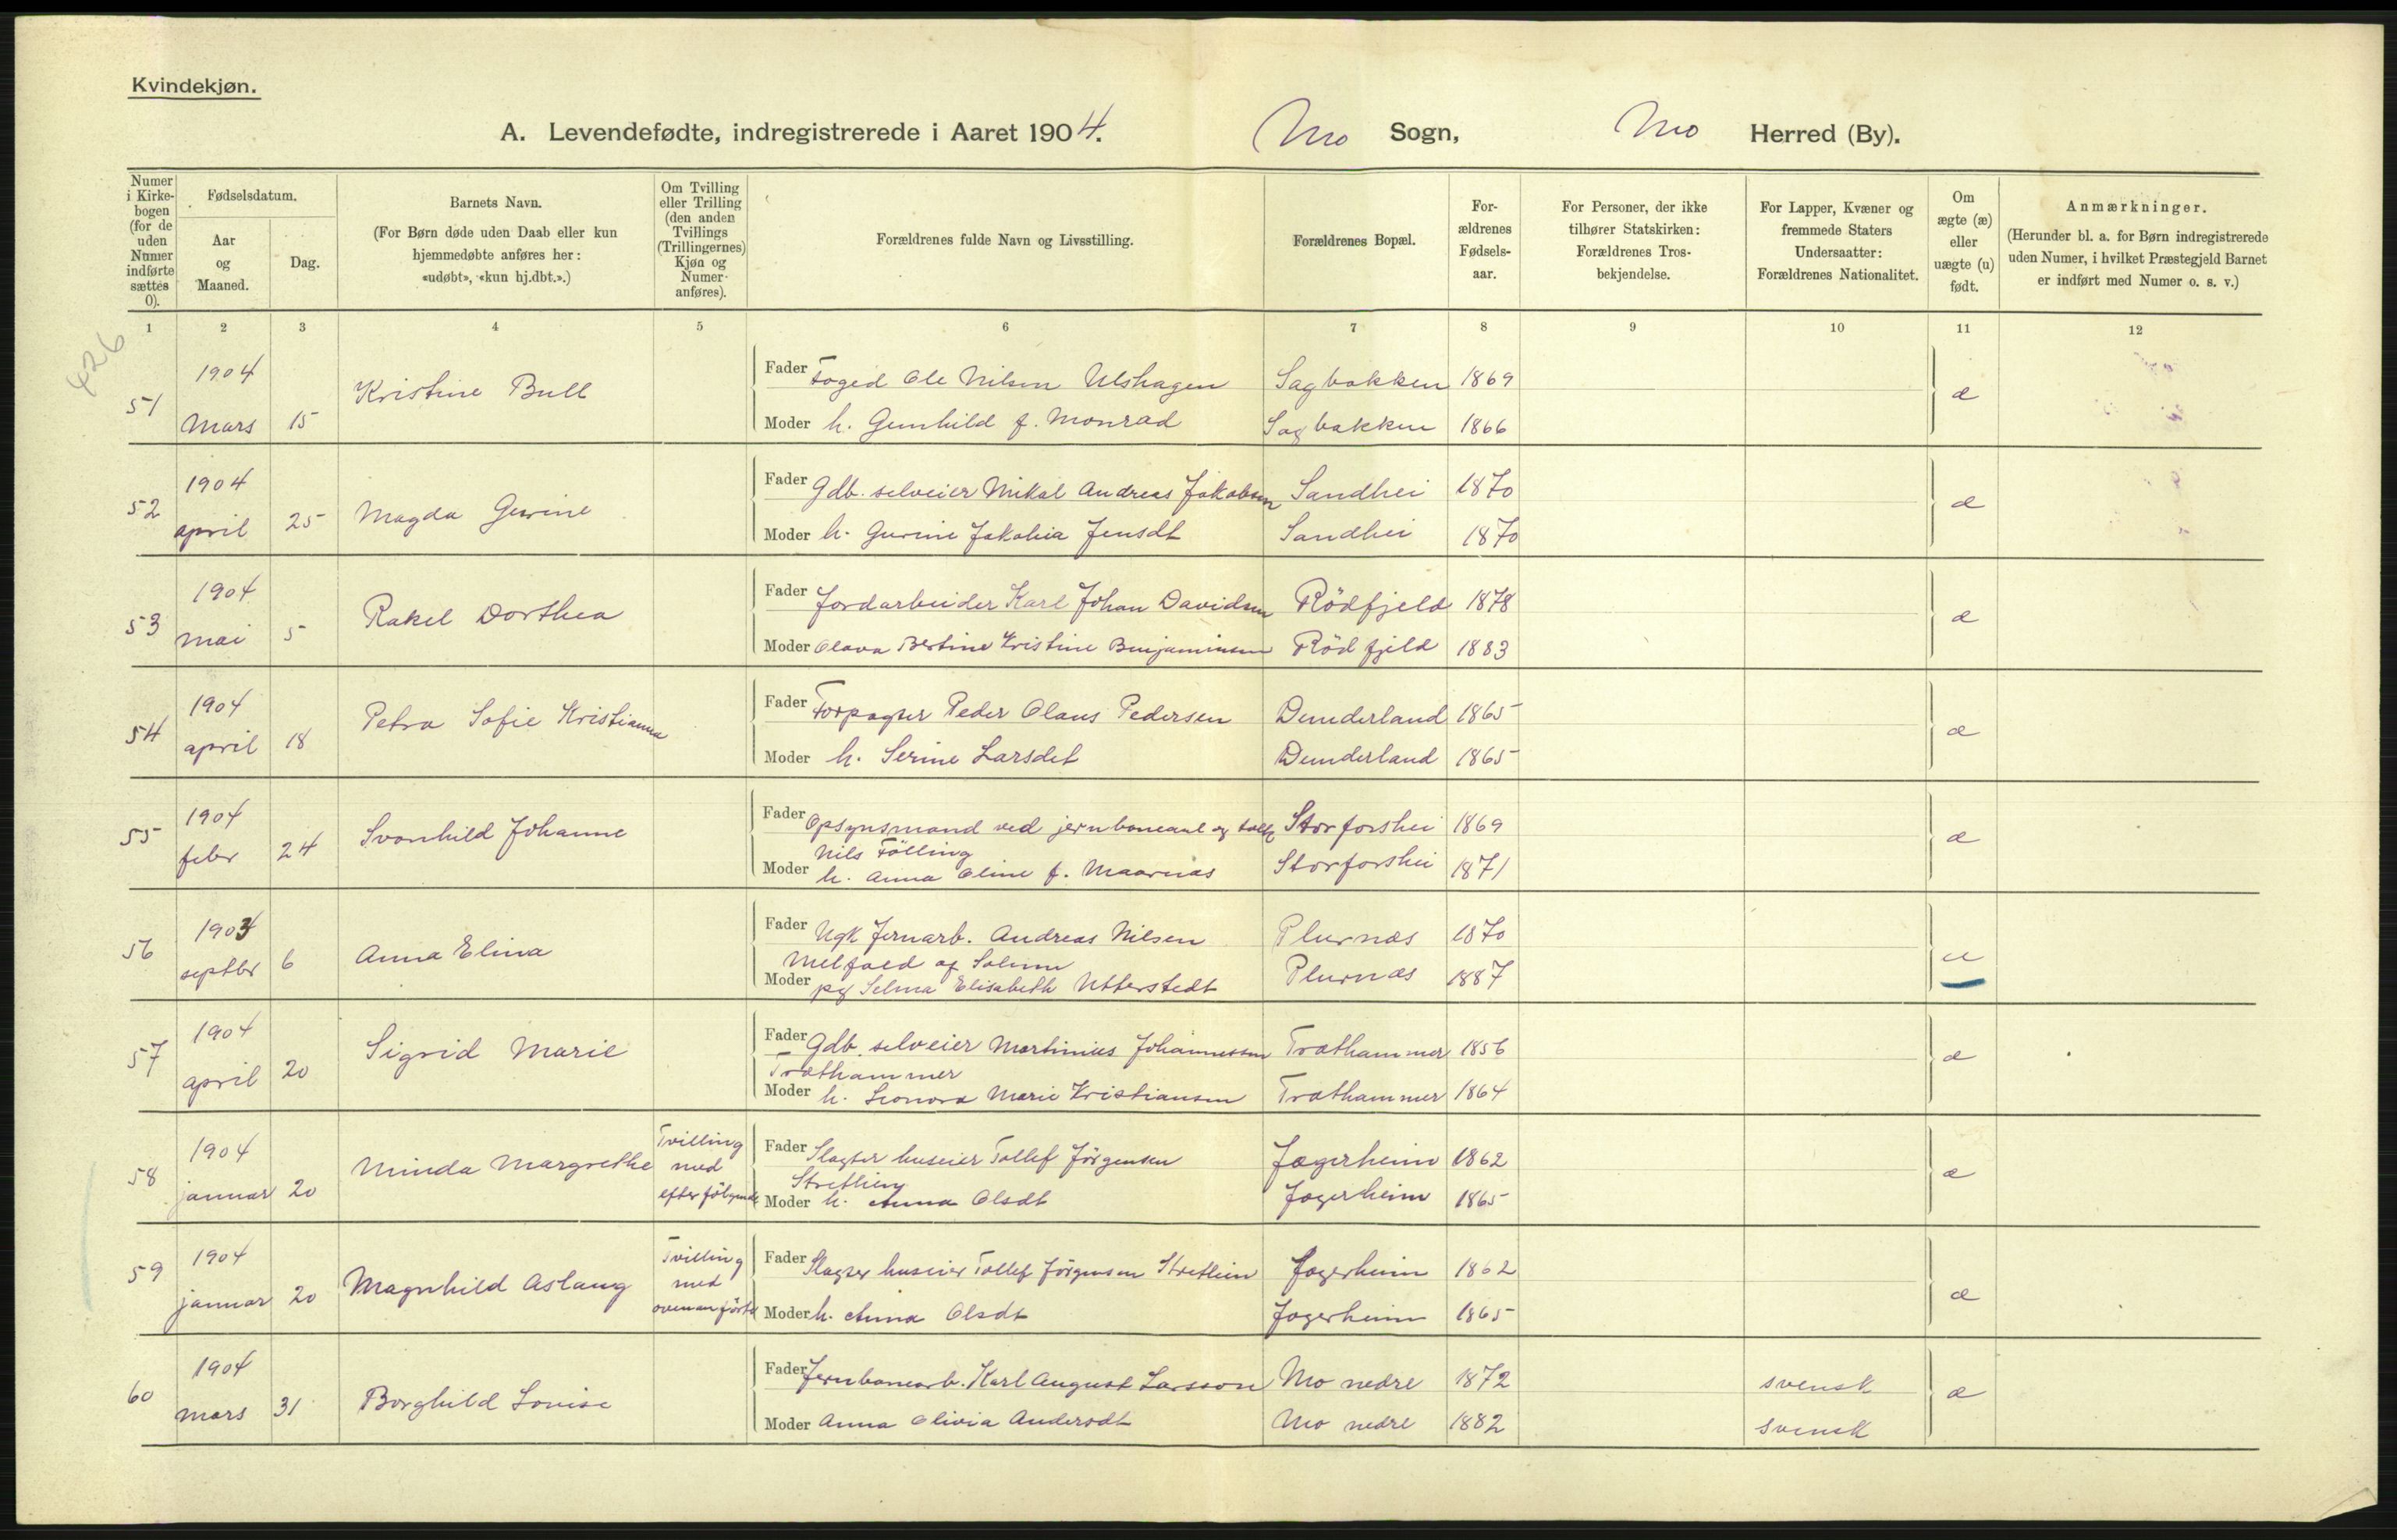 Kvindekjøn.
A. Levendefødte, indregistrerede i Aaret 1904. Mo Sogn, Mo Herred (By).
Numer i Kirkebogen (for de uden Numer indførte sættes 0).
Fødselsdatum.
Aar og Maaned.
Dag.
Barnets Navn.
(For Børn døde uden Daab eller kun hjemmedøbte anføres her: «udøbt», «kun hj.dbt.».)
Om Tvilling eller Trilling (den anden Tvillings (Trillingernes) Kjøn og Numer anføres).
Forældrenes fulde Navn og Livsstilling.
Forældrenes Bopæl.
Forældrenes Fødselsaar.
For Personer, der ikke tilhører Statskirken: Forældrenes Trosbekjendelse.
For Lapper, Kvæner og fremmede Staters Undersaatter: Forældrenes Nationalitet.
Om ægte (æ) eller uægte (u) født.
Anmærkninger.
(Herunder bl. a. for Børn indregistrerede uden Numer, i hvilket Præstegjeld Barnet er indført med Numer o. s. v.)
1 2 3 4 5 6 7 8 9 10 11 12
426
51 1904 Mars 15 Kristine Bull
Fader Foged Ole Nilsen Ulshagen Sagbakken 1869 æ
Moder h. Gunhild f. Monrad Sagbakken 1866
52 1904 april 25 Magda Gurine
Fader Gdb. selveier Mikal Andreas Jakobsen Sandhei 1870 æ
Moder h. Gurine Jakobia Jensdt Sandhei 1870
53 1904 mai 5 Rakel Dorthea
Fader Jordarbeider Karl Johan Davidsen Rödfjeld 1878 æ
Moder Olava Bertine Kristine Benjaminsen Rödfjeld 1883
54 1904 april 18 Petra Sofie Kristianna
Fader Forpagter Peder Olaus Pedersen Dunderland 1865 æ
Moder h. Serine Larsdet Dunderland 1865
55 1904 febr 24 Svanhild Johanne
Fader Opsynsmand ved jernbaneanl og Storforshei 1869 æ
Nils Fölling
Moder h. Anna Oline f. Maarnæs Storforshei 1871
56 1903 septbr 6 Anna Elina
Fader Ugk Jernarb. Andreas Nilsen Plurnæs 1870 u
Melfald og
Moder pg Selma Elisabeth Utterstedt Plurnæs 1887
57 1904 april 20 Sigrid Marie
Fader Gdb. selveier Martinius Johannessen Træthammer 1856 æ
Træthammer
Moder h. Leonora Marie Kristiansen Træthammer 1864
58 1904 januar 20 Minda Margrethe Tvilling med efterfölgende
Fader Slagter huseier Tollef Jörgensen Jægerheim 1862 æ
Moder h. Anna Olsdt Jægerheim 1865
59 1904 januar 20 Magnhild Aslaug Tvilling med ovenanförte
Fader Slagter huseier Tollef Jörgensen Jægerheim 1862 æ
Moder h. Anna Olsdt Jægerheim 1865
60 1904 mars 31 Borghild Lovise
Fader Jernbanearb. Karl August Larsson Mo nedre 1872 svensk æ
Moder Anna Olivia Andersdt Mo nedre 1882 svensk